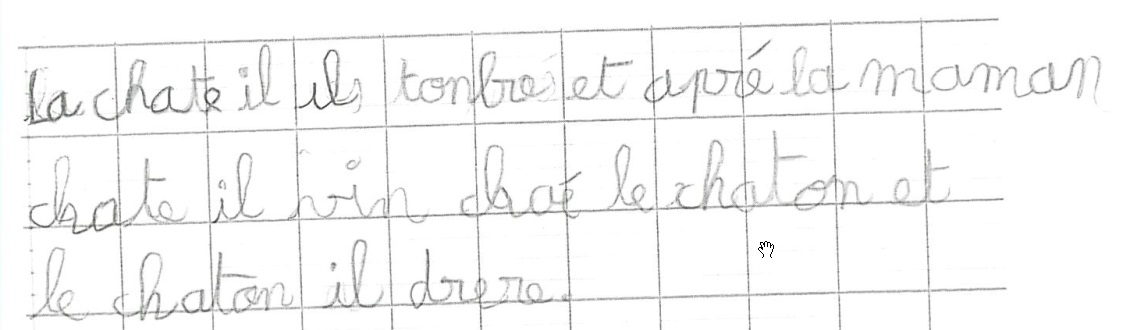 la chate il ils tonbre et apré la maman
chate il vin chaé le chaton et
le chaton il drere.